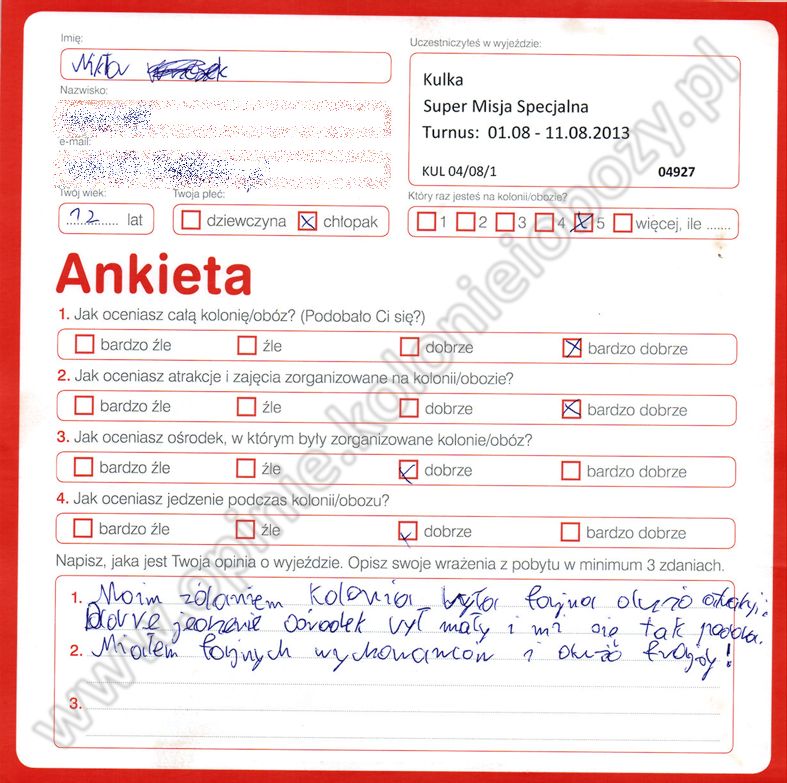 Imię:
Uczestniczyłeś w wyjeździe:
Wiktor
Kulka
Super Misja Specjalna
Turnus: 01.08 - 11.08.2013
KUL 04/08/1 04927
Nazwisko:
e-mail:
Twój wiek:
Twoja płeć:
Który raz jesteś na kolonii/obozie?
12 lat
dziewczyna
chłopak
1 2 3 4 5 więcej, ile .......
Ankieta
1. Jak oceniasz całą kolonię/obóz? (Podobało Ci się?)
bardzo źle źle dobrze bardzo dobrze
2. Jak oceniasz atrakcje i zajęcia zorganizowane na kolonii/obozie?
bardzo źle źle dobrze bardzo dobrze
3. Jak oceniasz ośrodek, w którym były zorganizowane kolonie/obóz?
bardzo źle źle dobrze bardzo dobrze
4. Jak oceniasz jedzenie podczas kolonii/obozu?
bardzo źle źle dobrze bardzo dobrze
Napisz, jaka jest Twoja opinia o wyjeździe. Opisz swoje wrażenia z pobytu w minimum 3 zdaniach.
1. Moim zdaniem kolonia była fajna dużo
dobre jedzenie ośrodek był mały i mi się tak
2. Miałem fajnych i dużo
3.
www.opinie.kolonieiobozy.pl